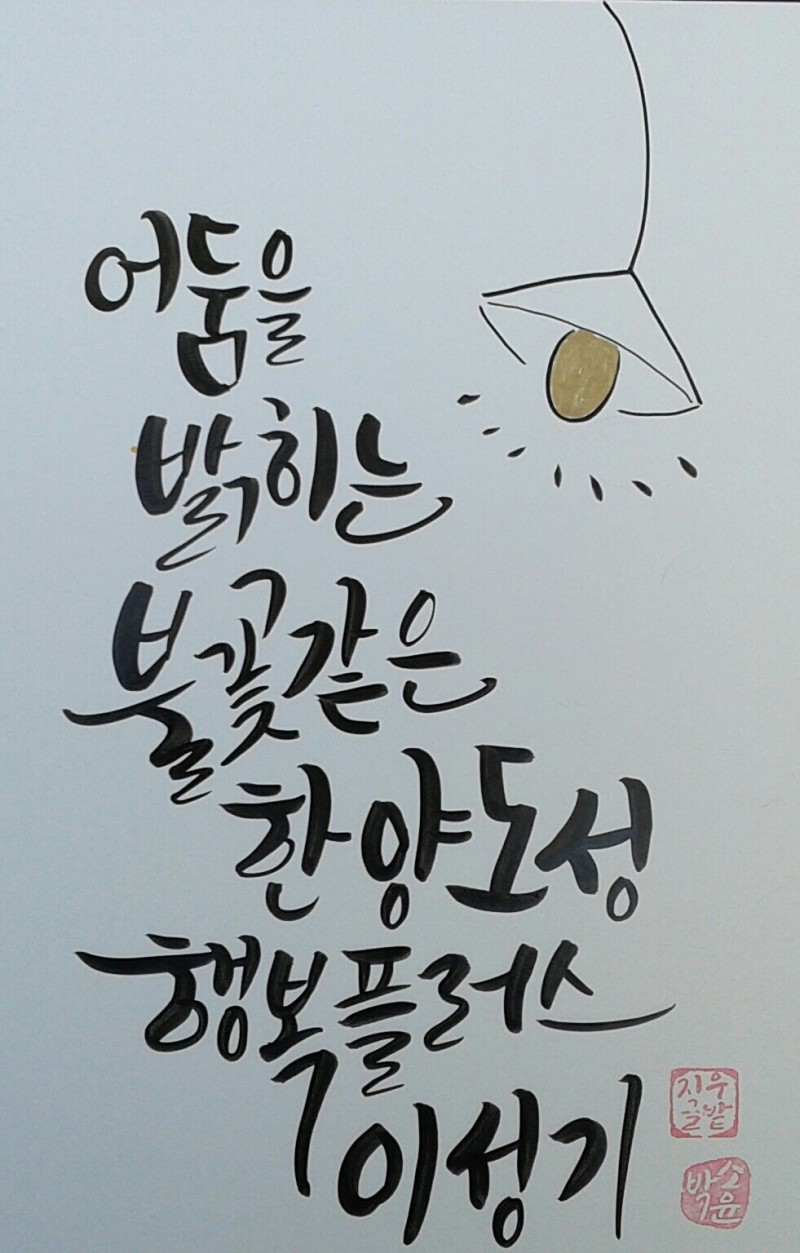 어둠을
밝히는
불꽃같은
한양도성
행복플러스
이성기
지우
글밭
박소윤